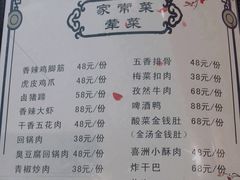 家常菜
荤菜
香辣鸡脚筋 48元/份
虎皮鸡爪 48元/份
卤猪蹄 58元/份
香辣大虾 88元/份
干香五花肉 48元/份
回锅肉 38元/份
臭豆腐回锅肉 48元/份
青椒炒肉 38元/份
五香排骨 68元/份
梅菜扣肉 38元/份
孜然牛肉 68元/份
啤酒鸭 88元/份
酸菜金钱肚 68元/份
(金汤金钱肚)
喜洲小酥肉 48元/份
炸干巴 68元/份